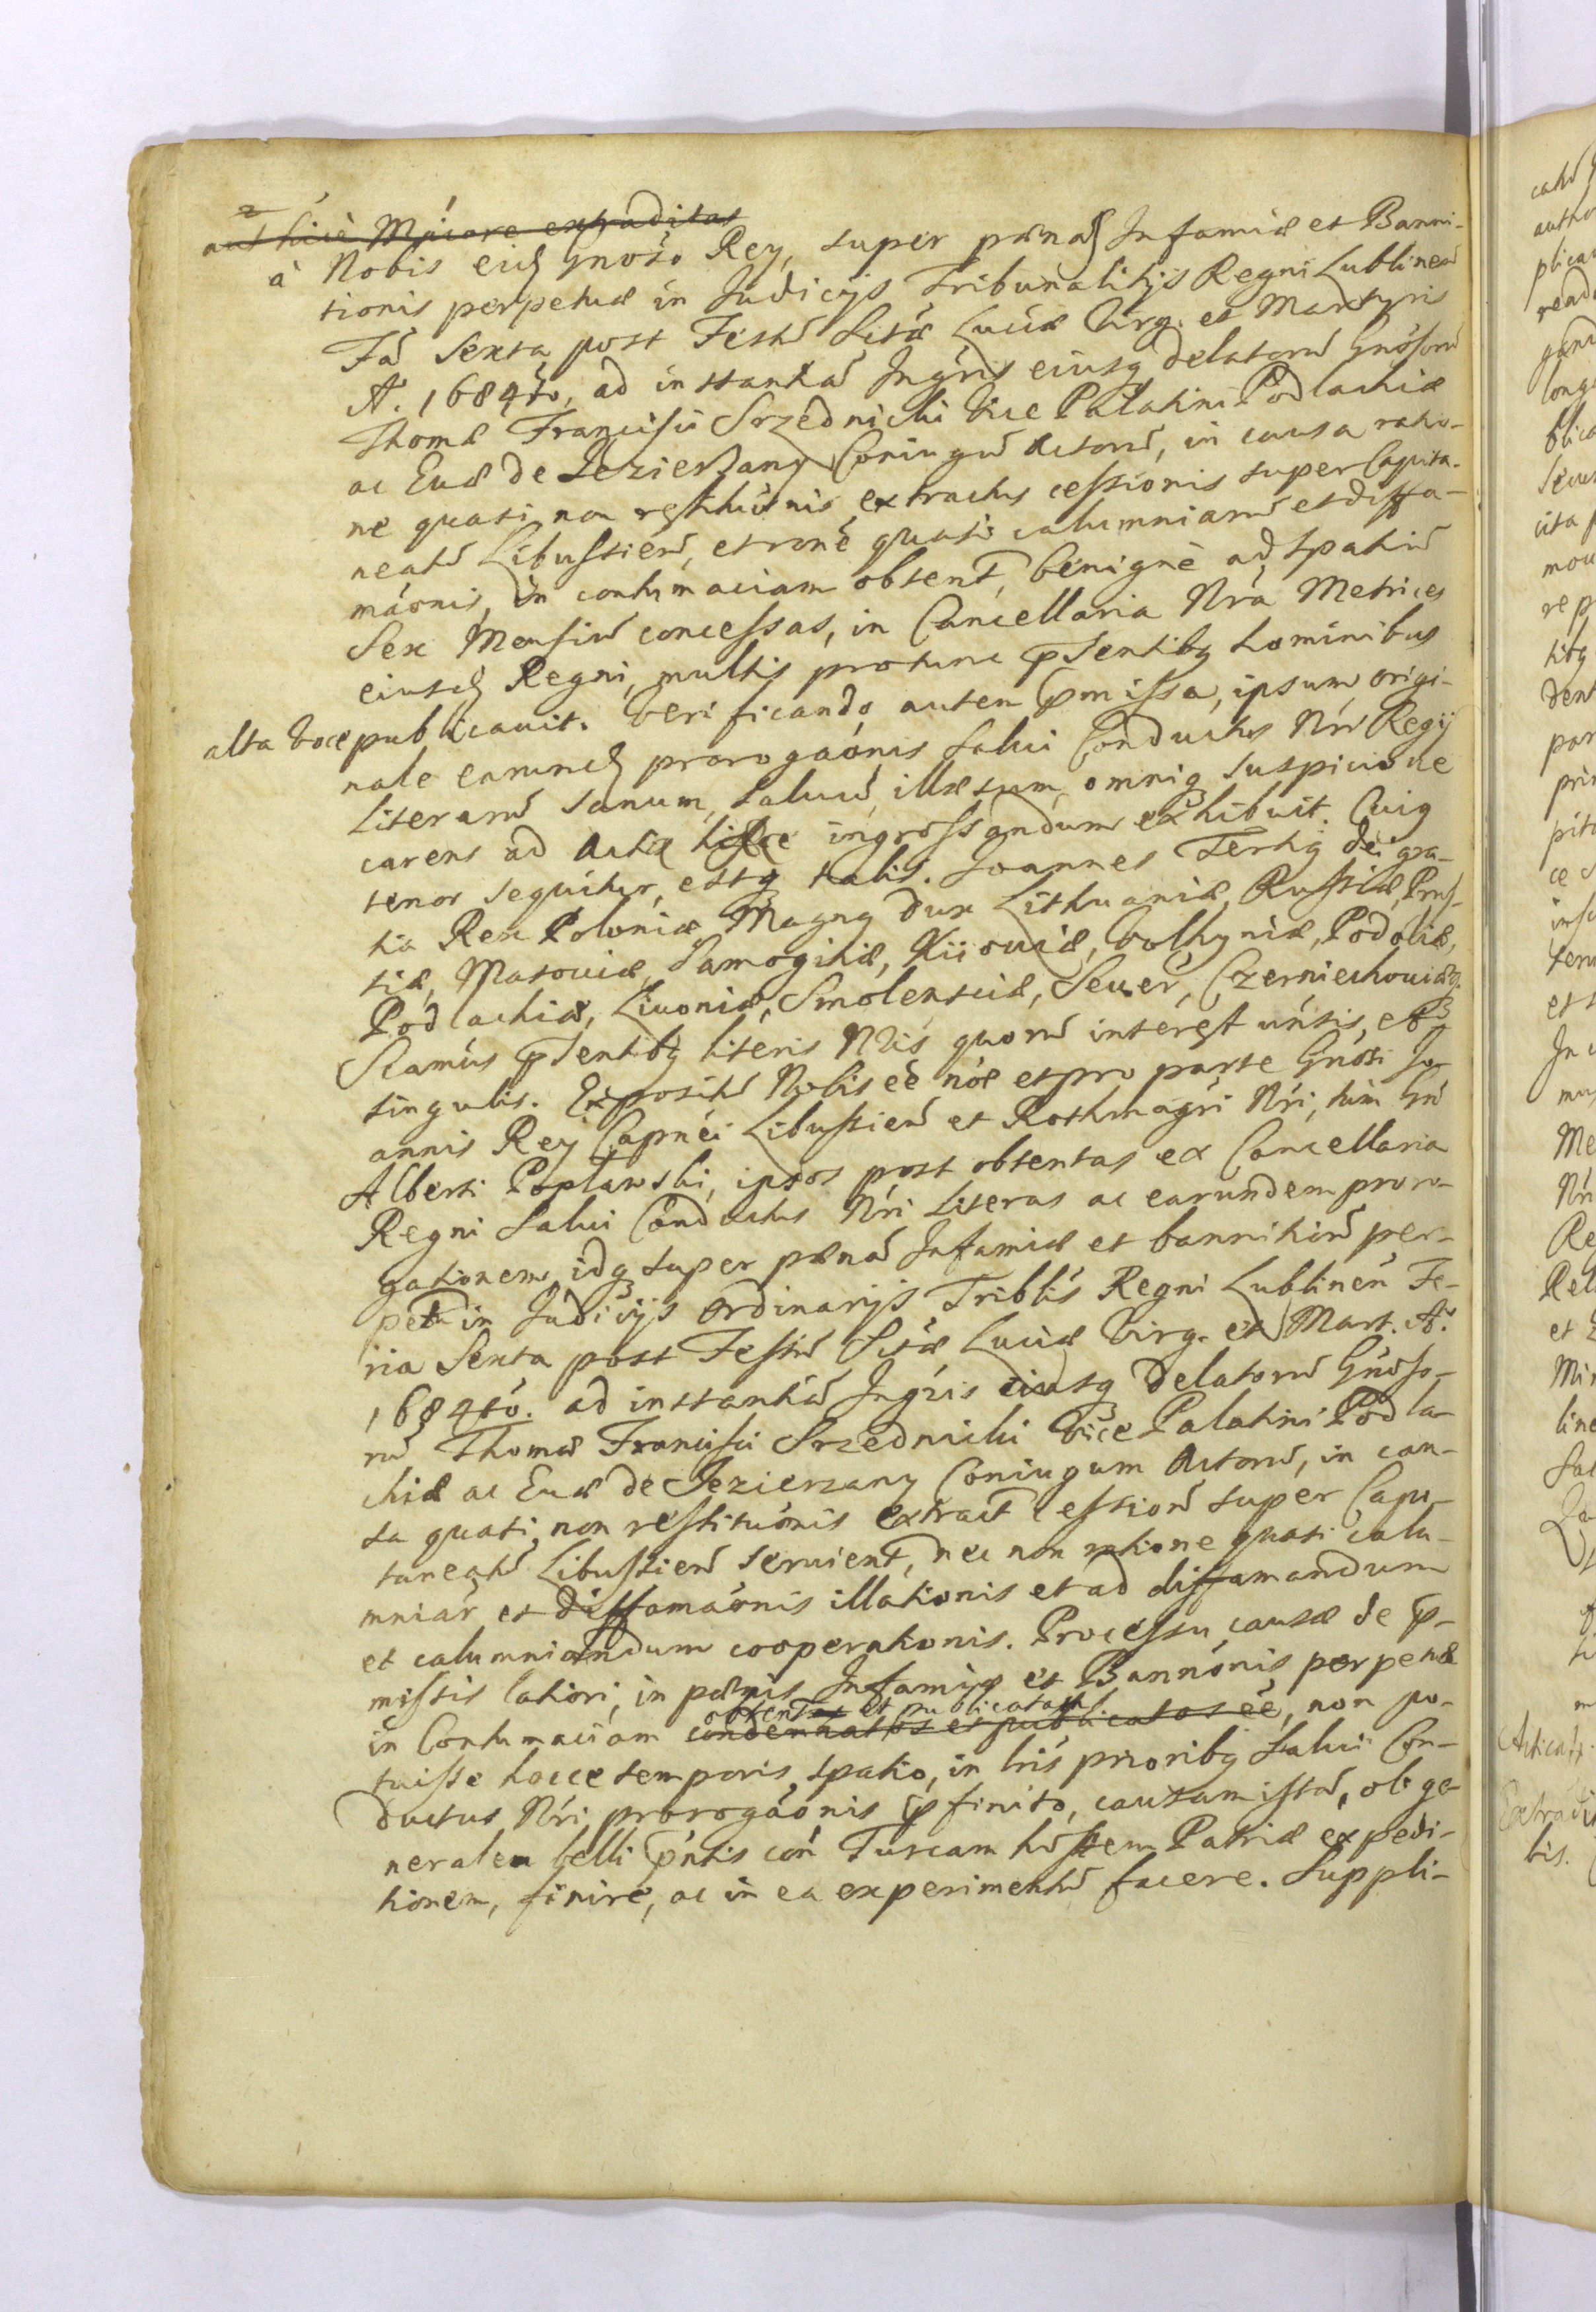 à Nobis eid Gnoso Rey, super pænas Infamiæ et Banni-
tionis perpetuæ in Judicijs Tribunalitijs Regni Lublinen̄
Fa Sexta post Festū Sctæ Luciæ Virg. et Martyris
A. 1684to, ad instantiā Ingris eiusq delatorū Gnosorū
Thomæ Francisci Srzednicki Vice Palatini Podlachiæ
ac Euæ de Jezierzany Coniugū Actorū, in causa ratio-
ne quasi non restitutionis extractus cessionis super Capita-
neatū Libusfien̄, et rone quasi calumniarū et diffa-
máonis, in contumaciam obtent, benignè ad spatiū
Sex Mensiū concessas, in Cancellaria Nrá Metrices
eiusd Regni, multis protunc psentibq hominibus
alta voce publicauit. Verificando autem pmissa, ipsum origi-
nale earund prorogaónis Salui Conductus Nri Regij
literarū sanum, saluū, illæsum, omniq suspicione
carens ad Acta hisce ingrossandum exhibuit. Cuiq
tenor sequitur, estq talis. Joannes Tertiq dei gra-
tia Rex Poloniæ Magnq Dux Lithuaniæ, Russiæ, Prus-
siæ, Masouiæ, Samogitiæ, Kiiouiæ, Volhyniæ, Podoliæ,
Podlachiæ, Liuoniæ, Smolensciæ, Seuer, Czerniechouiæq
Stamus psentibq literis Nris quorū interest unsis, et
singulis. Expositū Nobis eē nōe et pro parte Gnosi Jo-
annis Rey Capnéi Libusfien̄ et Rothmagri Nri, tùm Gn
Alberti Popławski, ipsos post obtentas ex Cancellaria
Regni Salui Conductus Nri Literas ac earundem proro-
gationem, idq super pænā Infamiæ et bannitiū per-
pet in Judicijs Ordinarijs Triblis Regni Lublinen̄ Fe-
ria Sexta post Festū Sctæ Luciæ Virg. et Mart. A.
1684tó. ad instantiā Ingris eiusq Delatorū Gnoso-
rū Thomæ Francisci Srzednicki Vice Palatini Podla-
chiæ ac Euæ de Jezierzany Coniugum Actorū, in cau-
sa quasi non restituónis extract cessionū super Capi-
taneatū Libusfien̄ seruient, nec non ratione quasi calu-
mniar et diffamaónis illationis et ad diffamandum
et calumniandum cooperationis. Processu causæ de p-
missis latiori, in pænis Infamiæ et Bannónis perpetuæ
obtentas et publicatas
in Contumaciam condemnatos et publicatos eē, non po-
tuisse hocce temporis spatio, in lris prioribq Salui Con-
ductus Nri prorogaónis pfinito, causam istā, ob ge-
neralem belli pntis con Turcam hostem Patriæ expedi-
tionem, finire, ac in ea experimentū facere. Suppli-